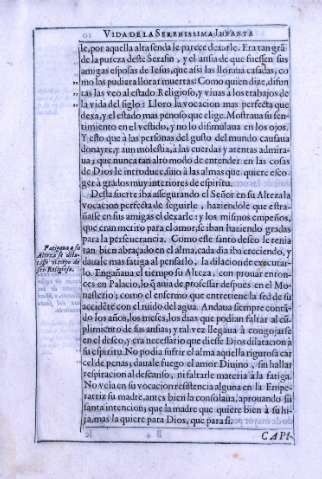 VIDA DE LA SERENISSIMA INFANTA
le, por aquella alta senda le parece dexarle. Era tan grã
de la pureza deste Serafin, y el ansia de que fuessen sus
amigas esposas de Iesus, que assi las lloraua casadas, co
mo las pudiera llorar muertas: Como quien dize, difun
tas las veo al estado Religioso, y viuas a los trabajos de
la vida del siglo: Lloro la vocacion mas perfecta que
dexa, y el estado mas penoso que elige. Mostraua su sen-
timiento en el vestido, y no lo disimulaua en los ojos.
Y esto que à las personas del gusto del mundo causaua
donayre, y aun molestia, à las cuerdas y atentas admira-
ua; que nunca tan alto modo de entender en las cosas
de Dios le introduce, sino à las almas que quiere esco-
ger à grados muy interiores de espiritu.
Desta suerte iba assegurando el Señor en su Alteza la
vocacion perfecta de seguirle, haziendole que estra-
ñasse en sus amigas el dexarle: y los mismos empeños,
que eran merito para el amor, se iban haziendo gradas
para la perseuerancia. Como este santo desseo le tenia
tan bien abraçado en el alma, cada dia iba creciendo, y
dauale mas fatiga al pensarlo, la dilacion de executar-
lo. Engañaua el tiempo su Alteza, con prouar enton-
ces en Palacio, lo q̃ auia de professar despues en el Mo-
nasterio; como el enfermo que entretiene la sed de su
accidẽte con el ruido del agua. Andaua siempre contan-
do los años, los meses, los dias que podian faltar al cũ-
plimiento de sus ansias; y tal vez llegaua à congojarse
en el desseo, y era necessario que diesse Dios dilatacion à
su espiritu. No podia sufrir el alma aquella rigurosa car
cel de penas; dauale fuego el amor Diuino, sin hallar
respiracion al descanso, ni faltarle materia à la fatiga.
No veia en su vocacion resistencia alguna en la Empe-
ratriz su madre, antes bien la consolaua, aprouando su
santa intencion; que la madre que quiere bien à su hi-
ja, mas la quiere para Dios, que para si.
Fatigaua a su
Alteza la dila-
cion
ser Religiosa.
CAPI-